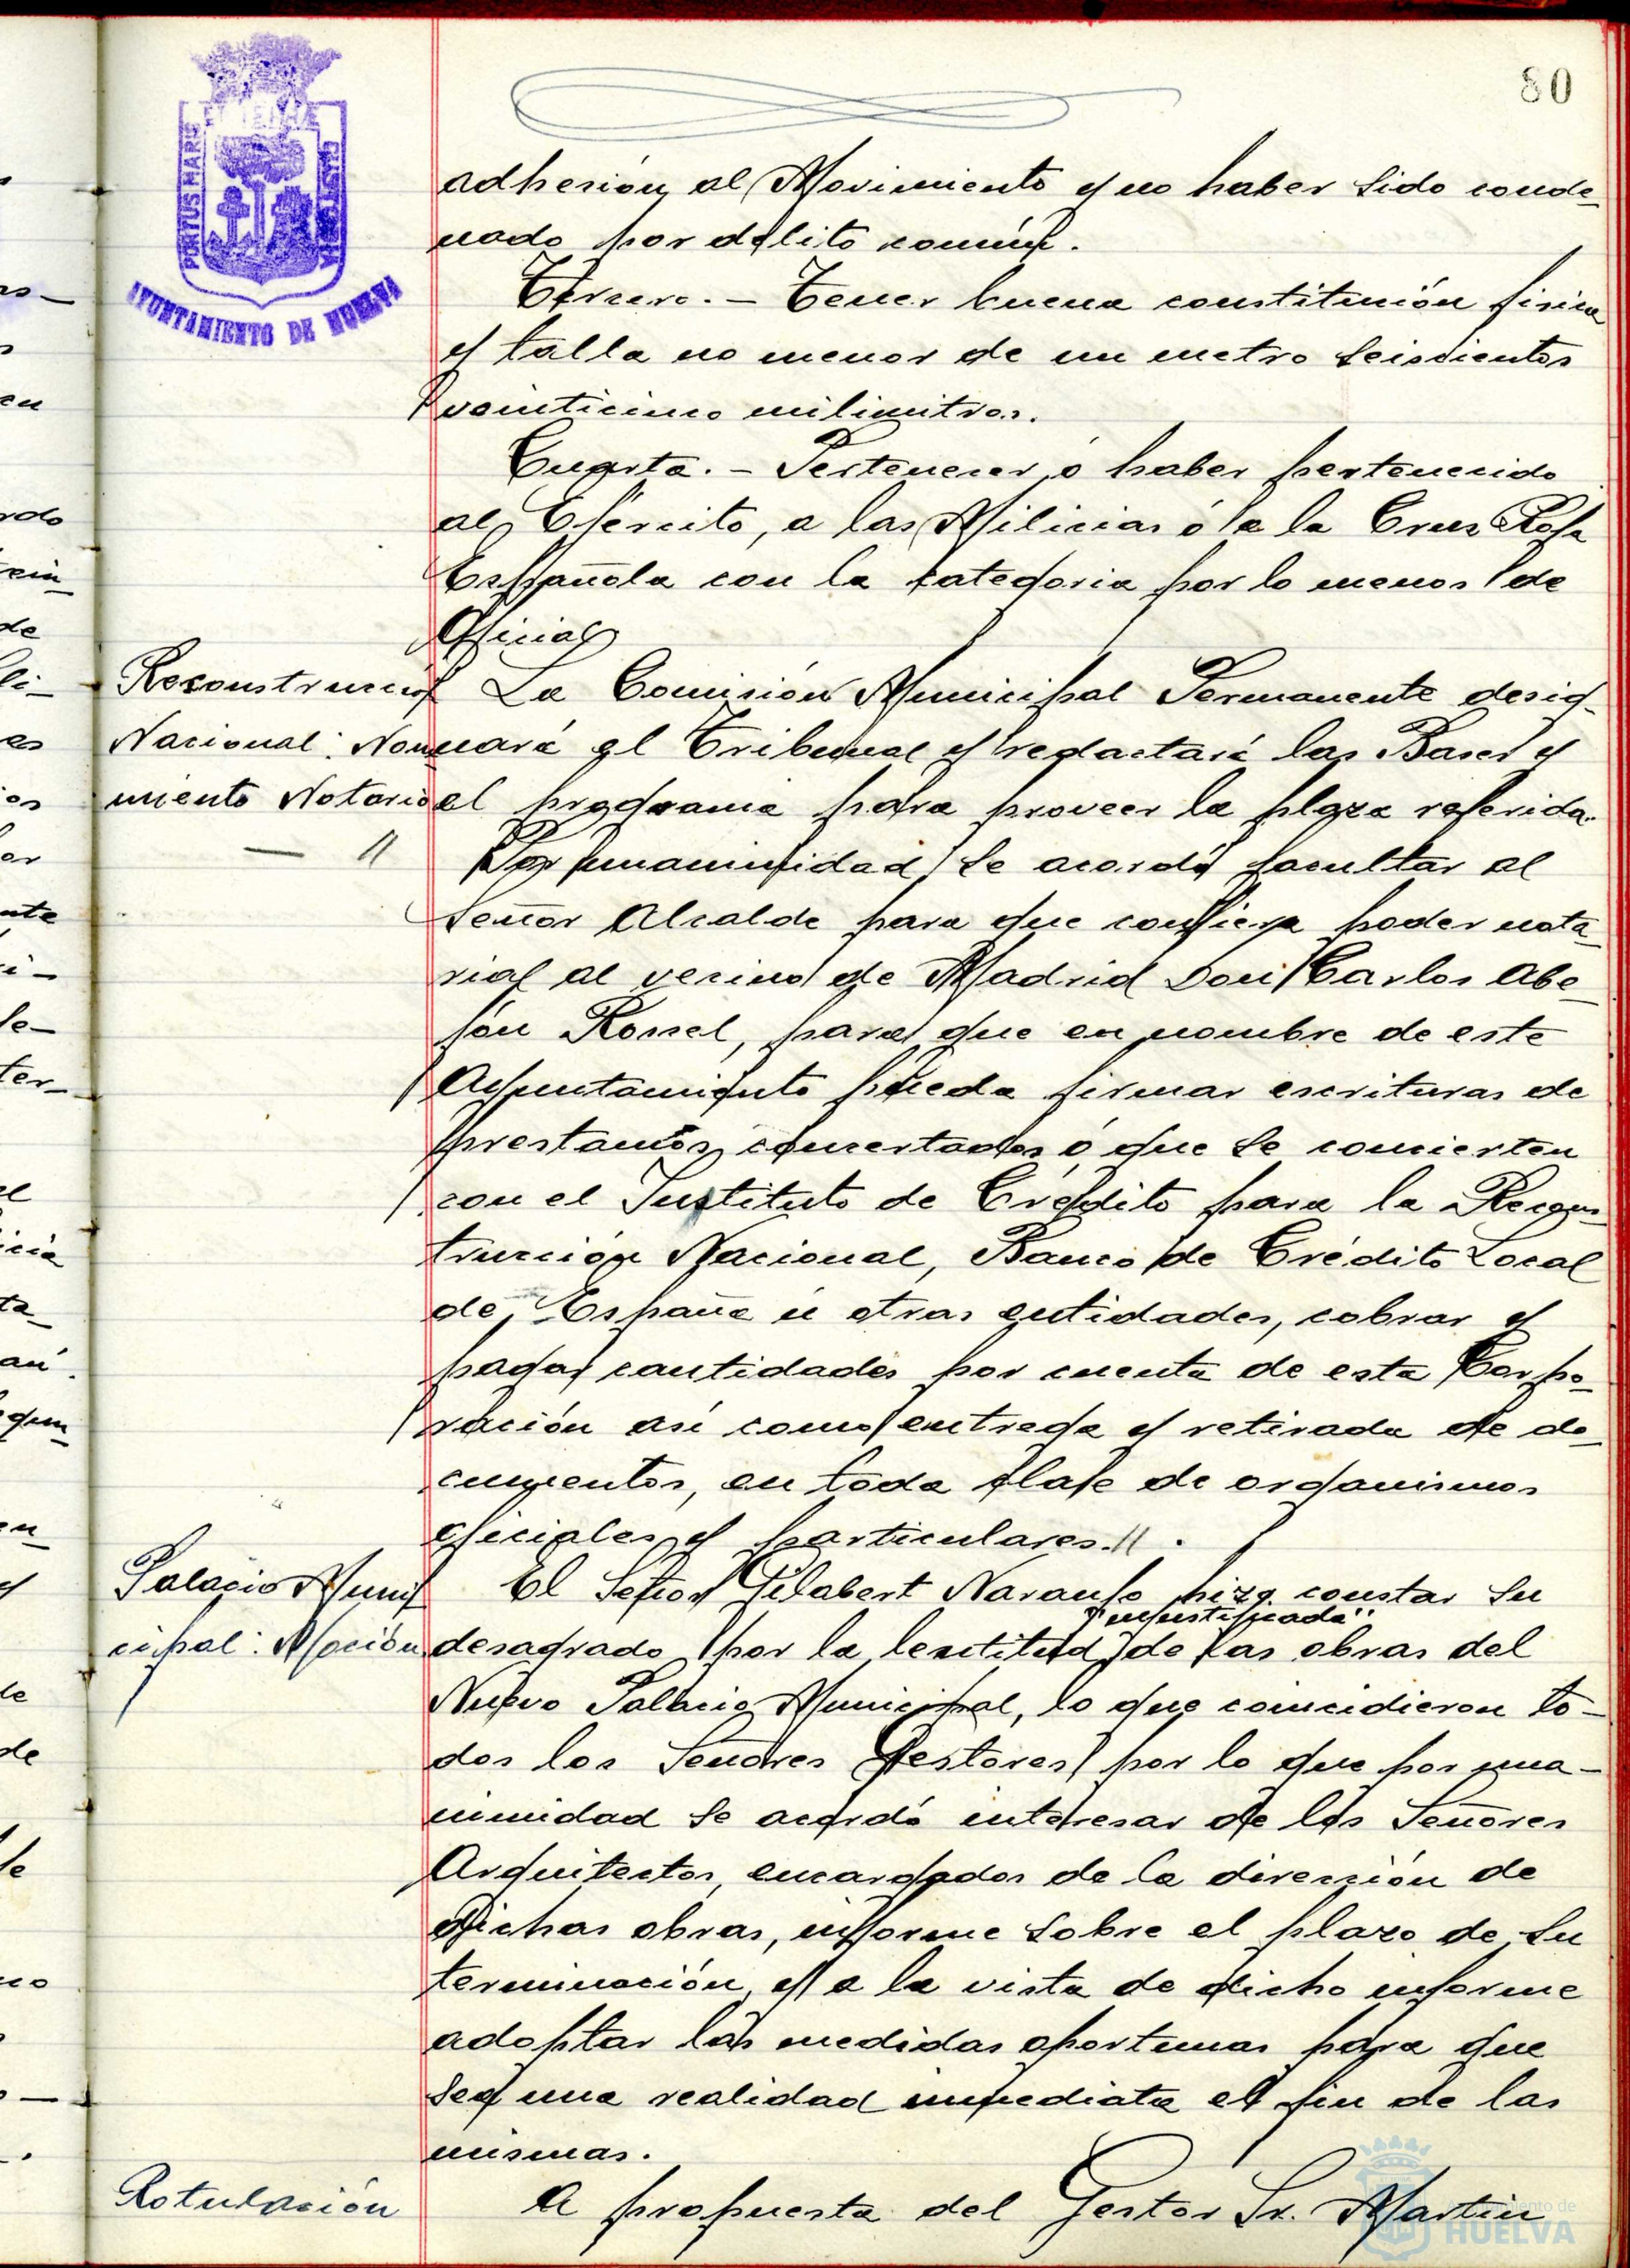 80
PORTUS MARIS ET TERRAE CUSTODIA
AYUNTAMIENTO DE HUELVA
adhesión al Movimiento y no haber sido conde-
nado por delito común.
Tercera.- Tener buena constitución fisica
y talla no menor de un metro seiscientos
veinticinco milimitros.
Cuarta.- Pertenecer ó haber pertenecido
al Ejército, a las Milicias ó a la Cruz Roja
Española con la categoria por lo menos de
Oficial
Reconstrucción
Nacional: Nom
miento Notario
— "
La Comisión Municipal Permanente desig-
nará el Tribunal y redactará las Bases y
el programa para proveer la plaza referida.
Por unanimidad se acordó facultar al
Señor Alcalde para que confiera poder nota-
rial al vecino de Madrid Don Carlos Abe-
jón Rossel, para que en nombre de este
Ayuntamiento pueda firmar escrituras de
prestamos concertados ó que se concierten
con el Instituto de Crédito para la Recons-
trucción Nacional, Banco de Crédito Local
de España u otras entidades, cobrar y
pagar cantidades por cuenta de esta Corpo-
ración asi como entrega y retirada de do-
cumentos, en toda clase de organismos
oficiales y particulares.".
Palacio Muni
cipal: Moción
El Señor Gilabert Naranjo hizo constar su
"injustificada"
desagrado por la lentitud de las obras del
Nuevo Palacio Municipal, lo que coincidieron to-
dos los Señores Gestores por lo que por una-
nimidad se acordó interesar de los Señores
Arquitectos, encargados de la dirección de
dichas obras, informe sobre el plazo de su
terminación, y a la vista de dicho informe
adoptar las medidas oportunas para que
sea una realidad inmediata el fin de las
mismas.
Rotulación
A propuesta del Gestor Sr. Martin
Ayuntamiento de
HUELVA